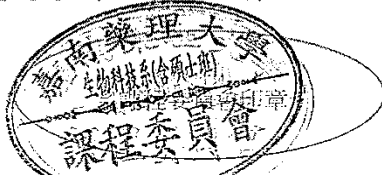 嘉南藥理大學
生物科技系(含碩士班)
課程委員會
章